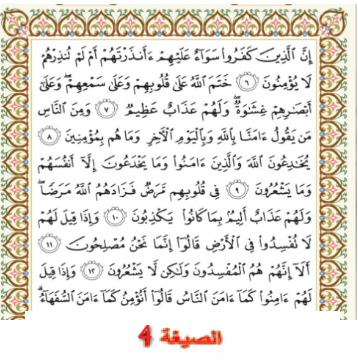 إِنَّ الَّذِينَ كَفَرُوا سَوَاءٌ عَلَيْهِمْ ءَأَنذَرْتَهُمْ أَمْ لَمْ تُنذِرْهُمْ
لَا يُؤْمِنُونَ ٦ خَتَمَ اللَّهُ عَلَى قُلُوبِهِمْ وَعَلَى سَمْعِهِمْ وَعَلَى
أَبْصَارِهِمْ غِشَاوَةٌ وَلَهُمْ عَذَابٌ عَظِيمٌ ٧ وَمِنَ النَّاسِ
مَن يَقُولُ ءَامَنَّا بِاللَّهِ وَبِالْيَوْمِ الْآخِرِ وَمَا هُم بِمُؤْمِنِينَ ٨
يُخَادِعُونَ اللَّهَ وَالَّذِينَ ءَامَنُوا وَمَا يَخْدَعُونَ إِلَّا أَنفُسَهُمْ
وَمَا يَشْعُرُونَ ٩ فِي قُلُوبِهِم مَّرَضٌ فَزَادَهُمُ اللَّهُ مَرَضًا
وَلَهُمْ عَذَابٌ أَلِيمٌ بِمَا كَانُوا يَكْذِبُونَ ١٠ وَإِذَا قِيلَ لَهُمْ
لَا تُفْسِدُوا فِي الْأَرْضِ قَالُوا إِنَّمَا نَحْنُ مُصْلِحُونَ ١١
أَلَا إِنَّهُمْ هُمُ الْمُفْسِدُونَ وَلَكِن لَّا يَشْعُرُونَ ١٢ وَإِذَا قِيلَ
لَهُمْ ءَامِنُوا كَمَا ءَامَنَ النَّاسُ قَالُوا أَنُؤْمِنُ كَمَا ءَامَنَ السُّفَهَاءُ
الصيغة 4